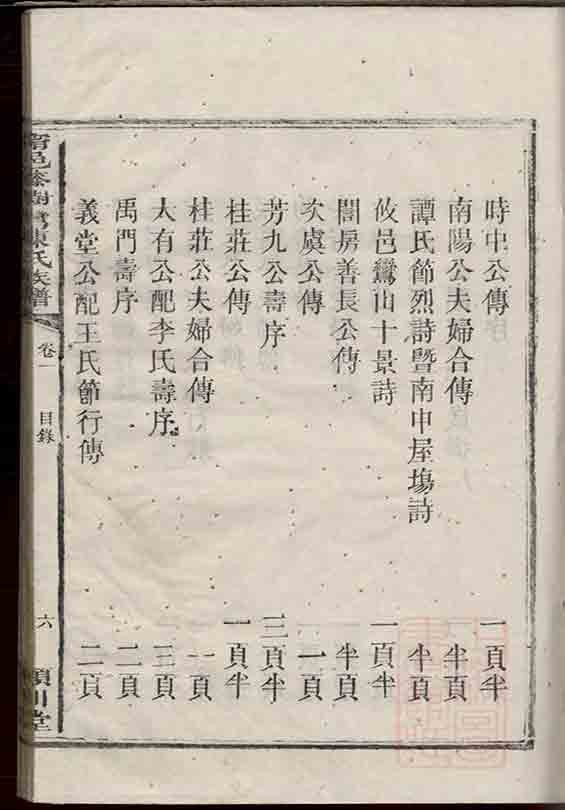 時中公傳 一頁半
南陽公夫婦合傳 半頁
譚氏節烈詩暨南中屋塲詩 半頁
攸邑鸞山十景詩 一頁半
誾房善長公傳 半頁
次虞公傳 一頁
芳九公壽序 三頁半
桂莊公傳 一頁半
桂莊公夫婦合傳 一頁
大有公配李氏壽序 三頁
禹門壽序 二頁
義堂公配王氏節行傳 二頁
陳氏族譜
卷一 目錄 六
川堂